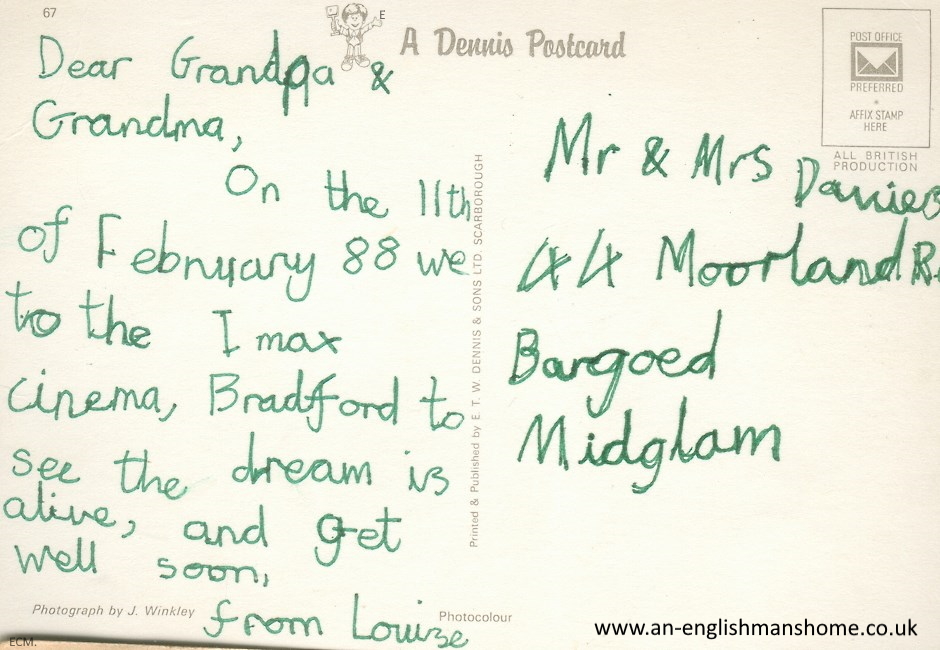 67
E
A Dennis Postcard
Dear Grandpa &
Grandma,
On the 11th
of February 88 we
to the Imax
cinema, Bradford to
see the dream is
alive, and get
well soon,
from Louise
Photograph by J. Winkley
Photocolour
ECM.
Printed & Published by E. T. W. DENNIS & SONS LTD. SCARBOROUGH
POST OFFICE
PREFERRED
AFFIX STAMP
HERE
ALL BRITISH
PRODUCTION
Mr & Mrs Davies
44 Moorland R
Bargoed
Midglam
www.an-englishmanshome.co.uk